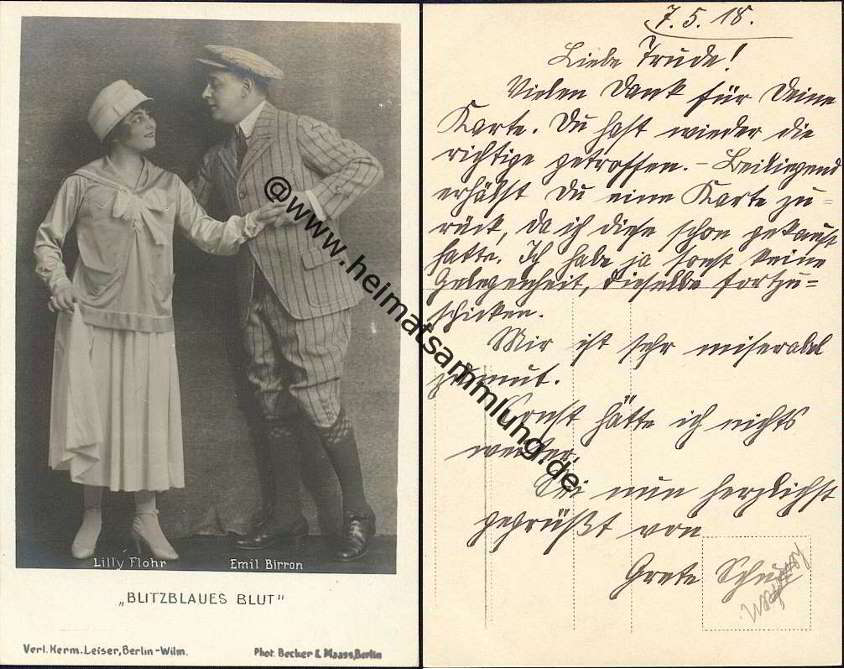 Lilly Flohr
Emil Birron
„BLITZBLAUES BLUT"
Verl. Herm. Leiser, Berlin-Wilm.
Phot. Becker & Maass, Berlin
@www.heimatsammlung.de
7.5.18.
Liebe Trude!
Vielen Dank für Deine
Karte. Du hast wieder die
richtige getroffen. – Beiliegend
erhälst Du eine Karte zu=
rück, da ich diese schon gekauft
hatte. Ich habe ja sonst keine
Gelegenheit, dieselbe fortzu=
schicken.
Mir ist sehr miserabel
zumut.
Sonst hätte ich nichts
weiter.
Sei nun herzlichst
gegrüßt von
Grete